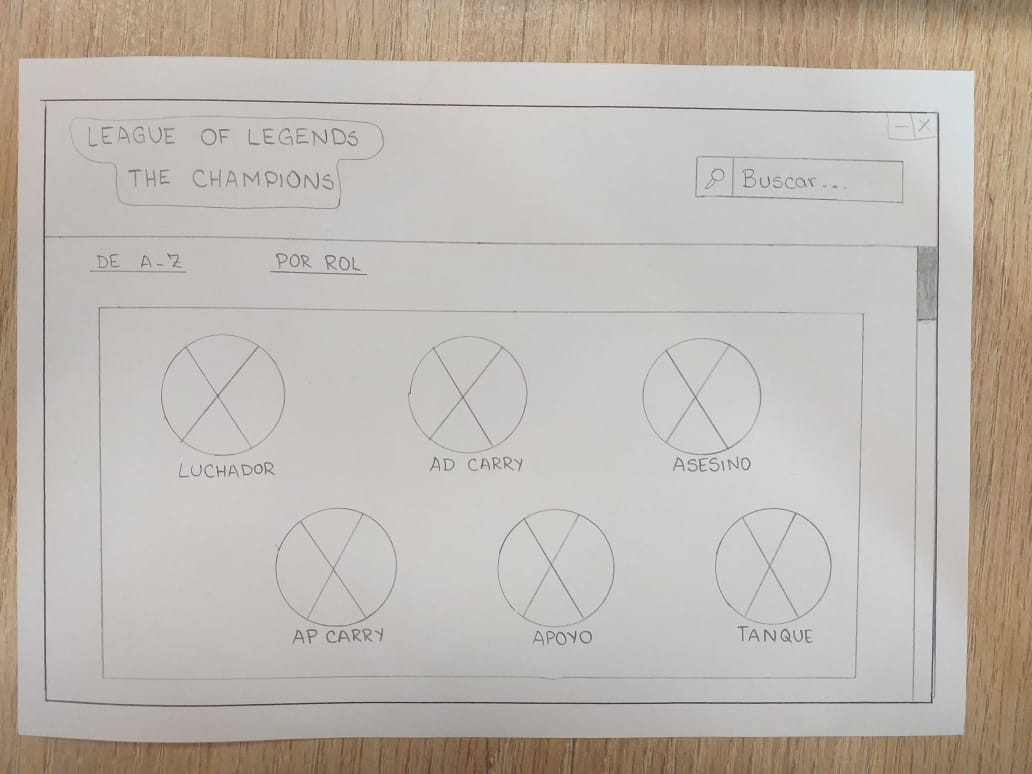 LEAGUE OF LEGENDS
THE CHAMPIONS
Buscar...
DE A-Z
POR ROL
LUCHADOR
AD CARRY
ASESINO
AP CARRY
APOYO
TANQUE